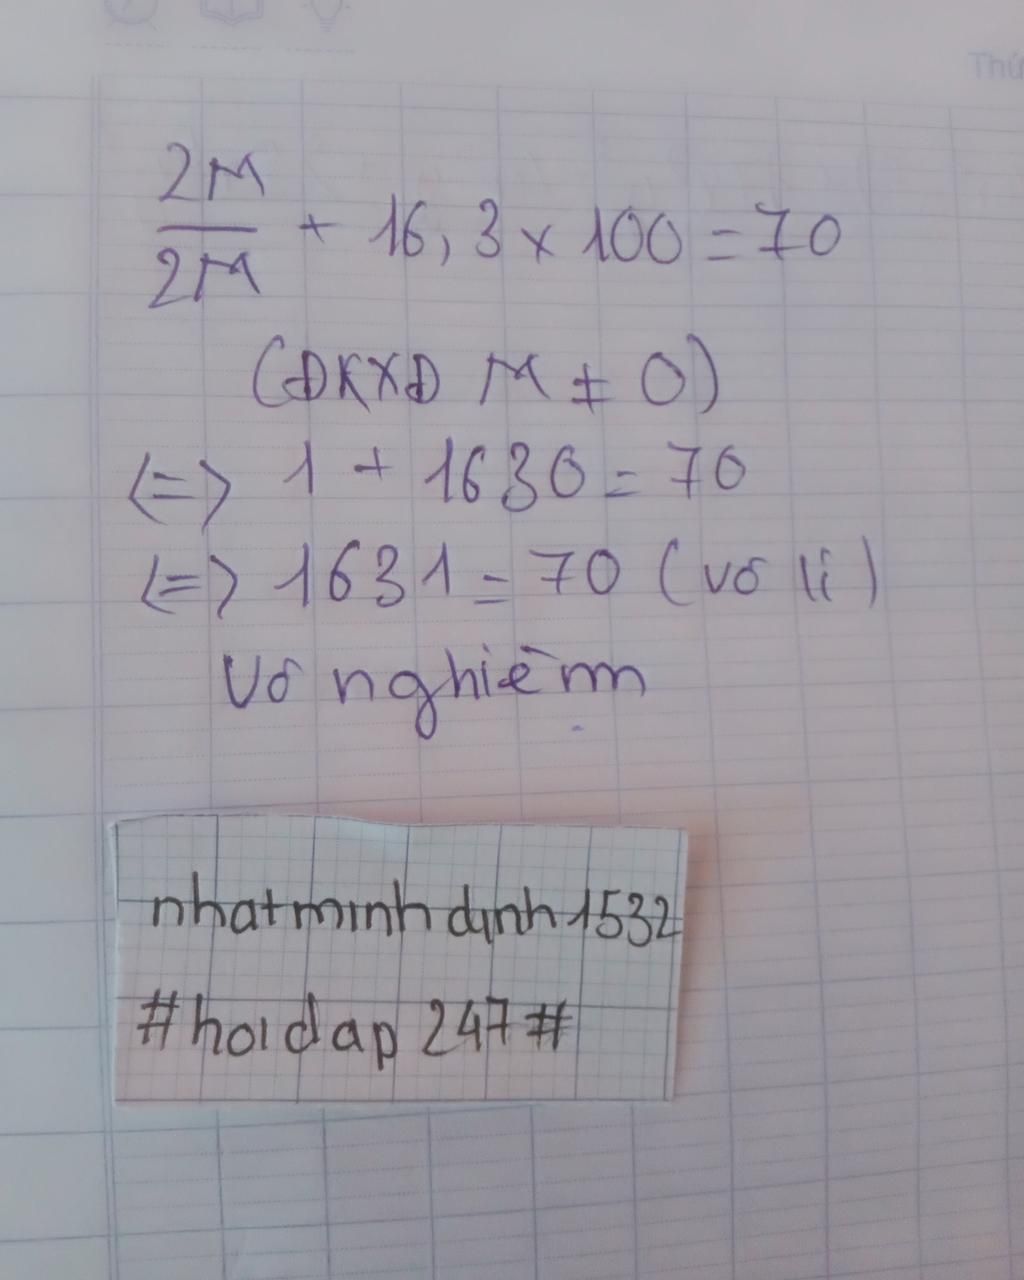 Thứ
2M
2M
+ 16,3 × 100 = 70
(ĐKXĐ M ≠ 0)
<=> 1 + 1630 = 70
<=> 1631 = 70 (vô lí)
Vô nghiệm
nhatminhdinh1532
#hoidap247#